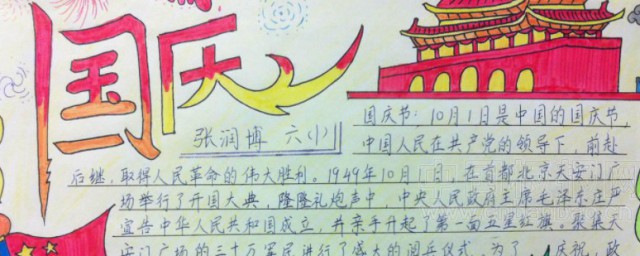 国庆
张润博 六(小)
国庆节:10月1日是中国的国庆节,
中国人民在共产党的领导下,前赴
后继,取得人民革命的伟大胜利。1949年10月1日,在首都北京天安门广
场举行了开国大典,隆隆礼炮声中,中央人民政府主席毛泽东庄严
宣告中华人民共和国成立,并亲手升起了第一面五星红旗。聚集天
安门广场的三十万军民进行了盛大的阅兵仪式。为了 庆祝,政